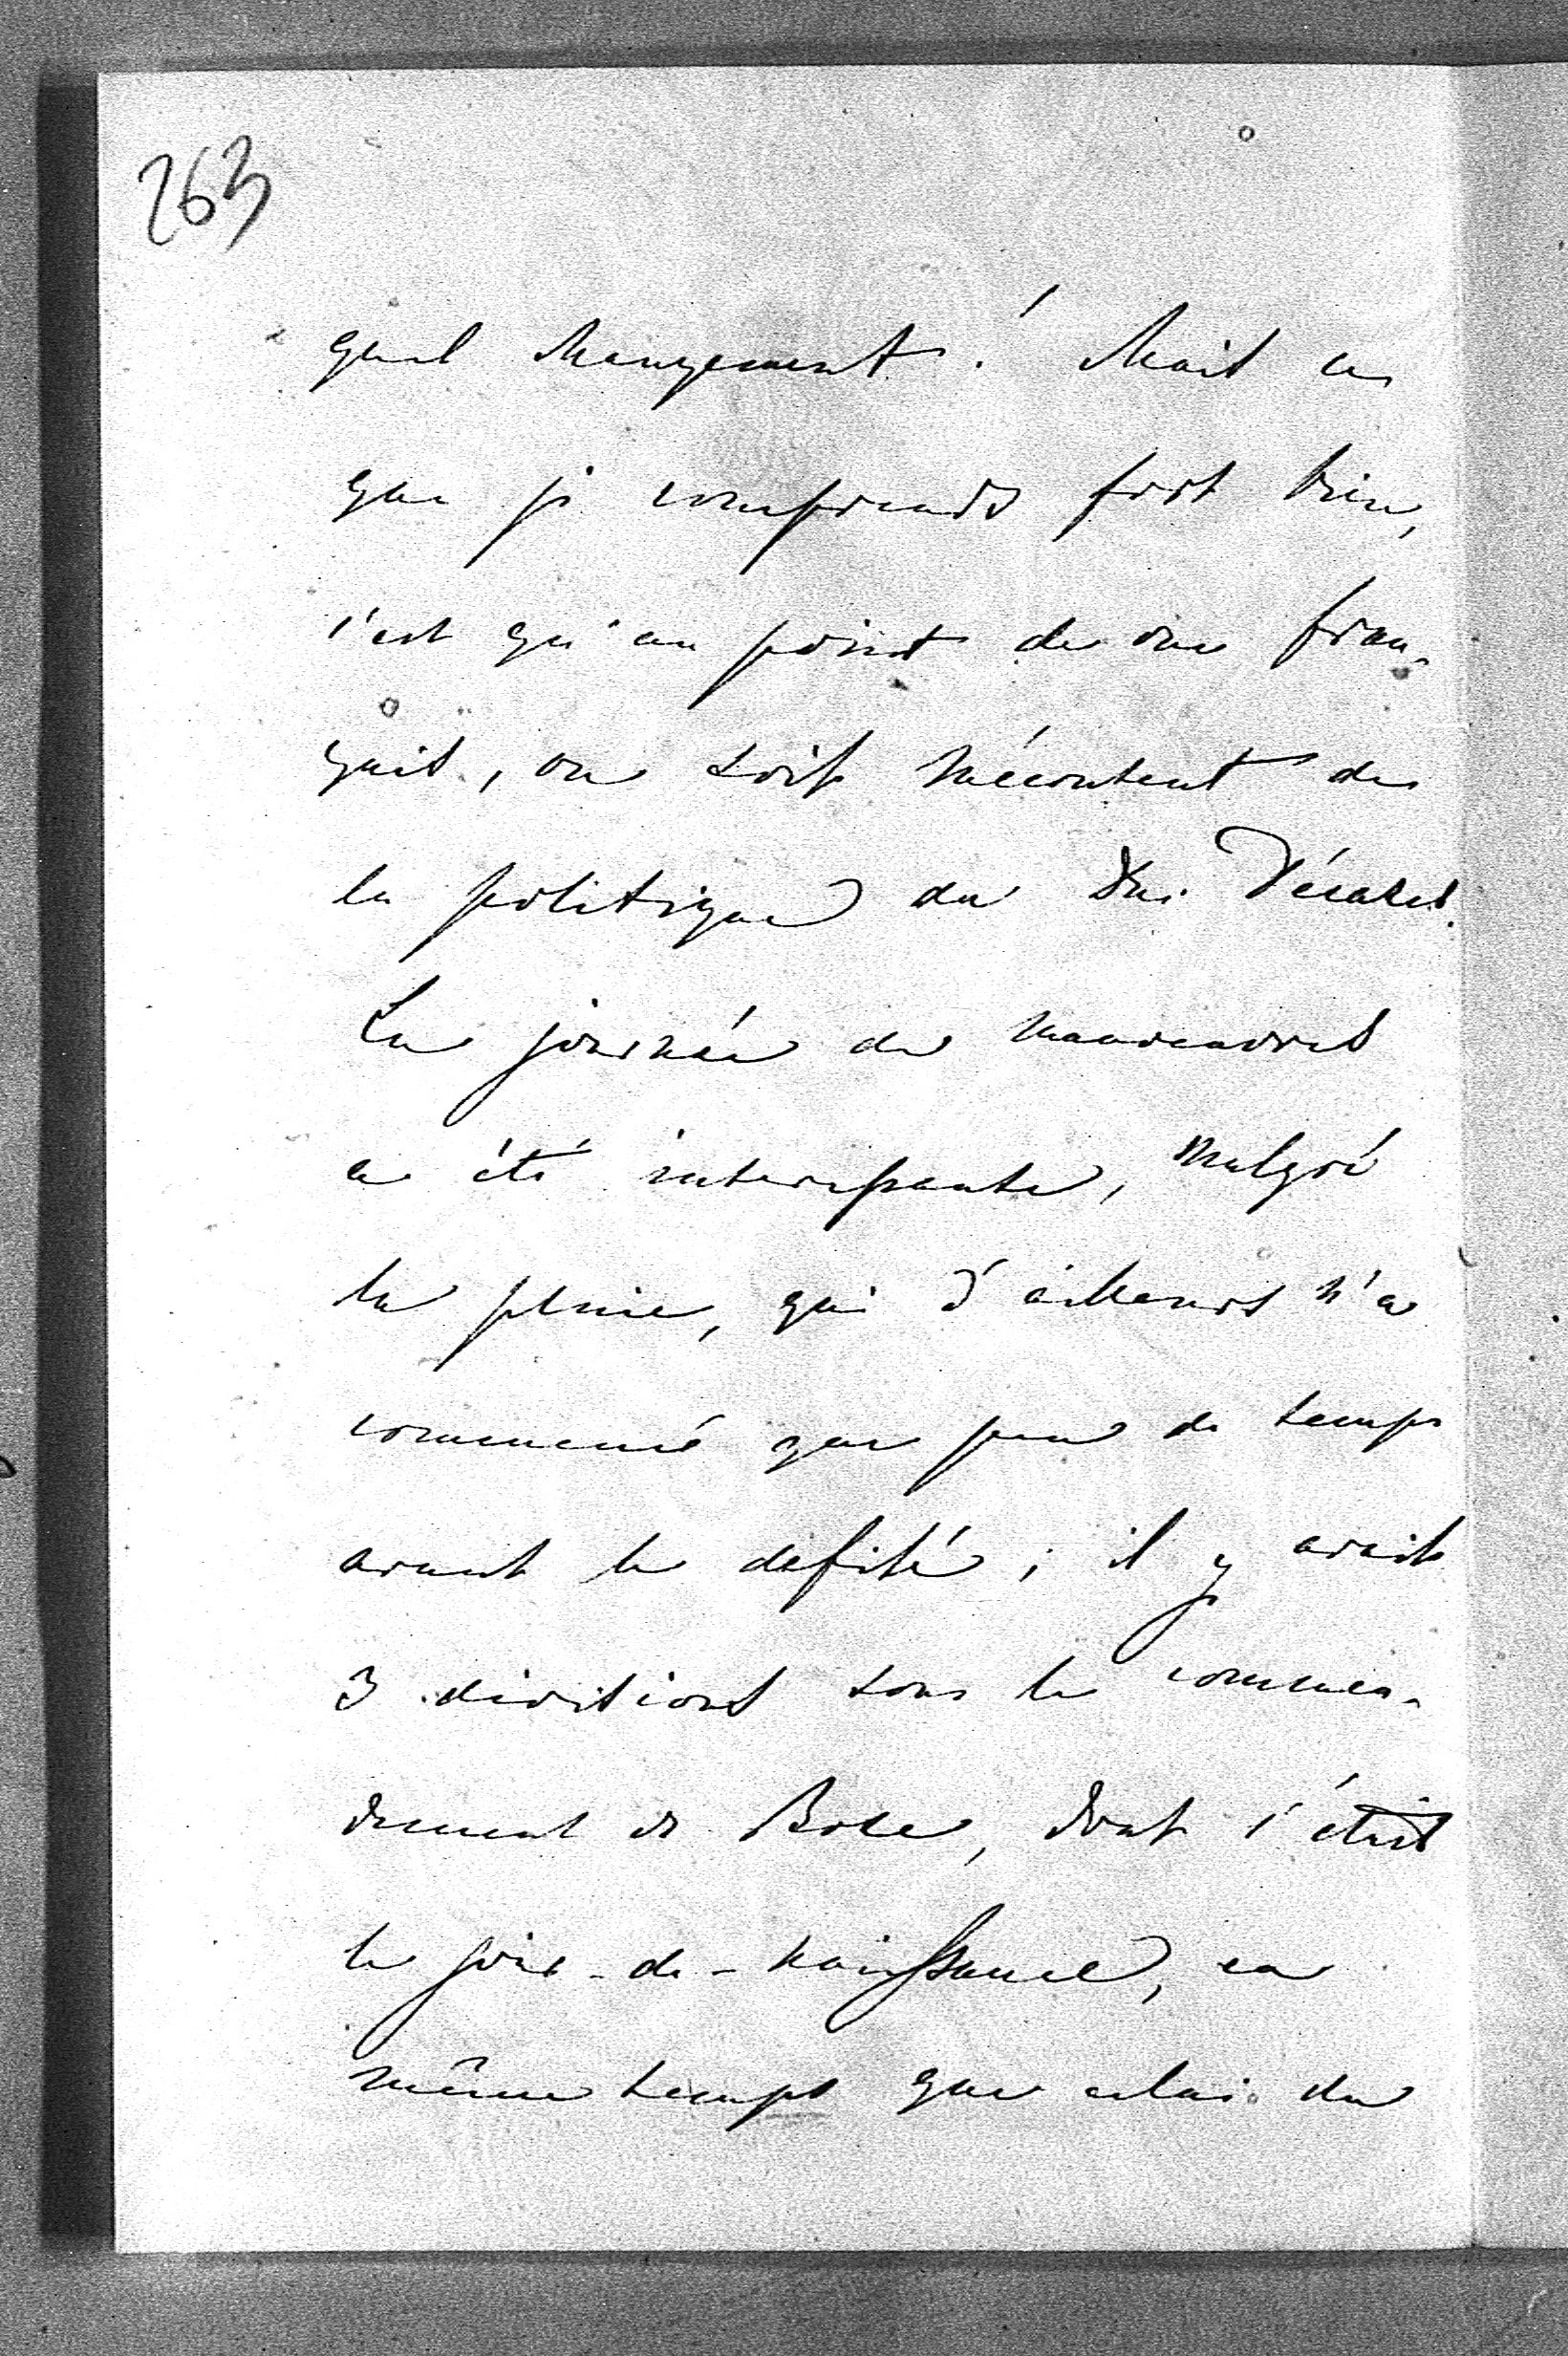 263
quel changement! Mais ce
que je comprends fort bien,
c'est qu'au point de vue fran-
çais, on soit mécontent de
la politique du Duc Décazes.
La journée de manœuvres
a été interessante, malgré
la pluie, qui d'ailleurs n'a
commencé que peu de temps
avant le defilé; il y avait
3 divisions sous le comman-
dement de Bose, dont c'était
le jour-de-naissance, en
même temps que celui du